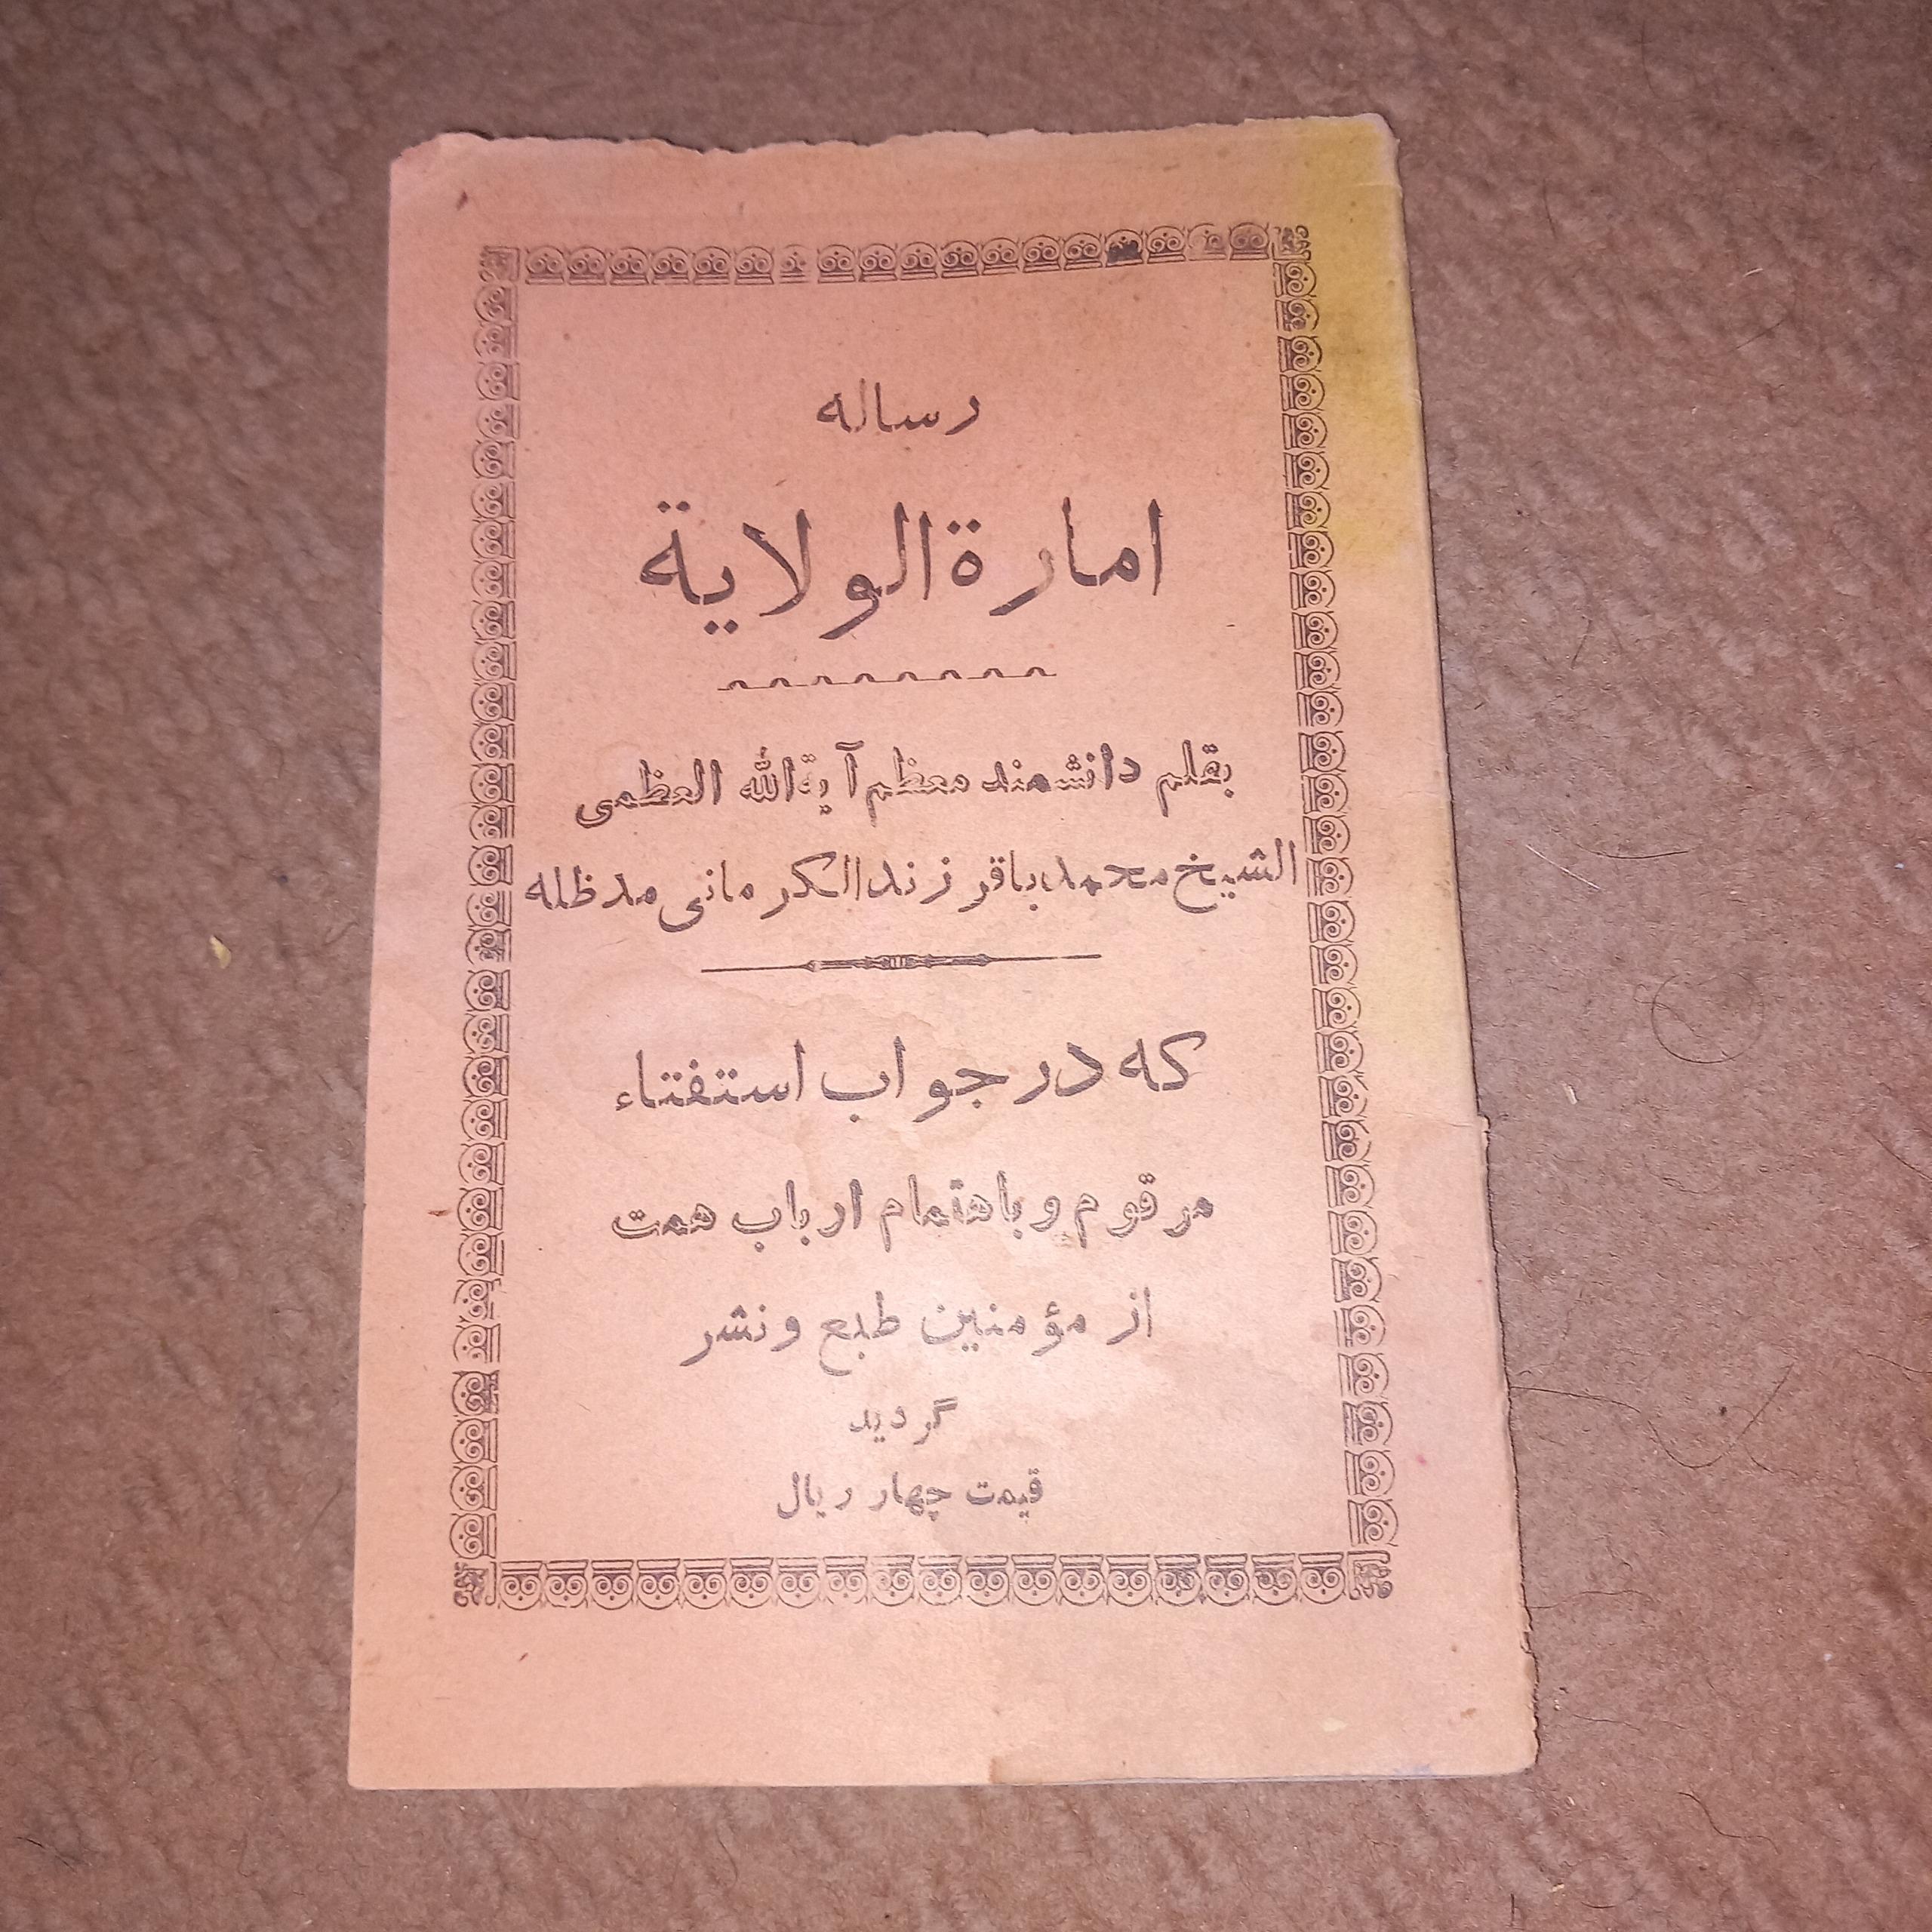 رساله
امارة الولایة
بقلم دانشمند معظم آیة الله العظمی
الشیخ محمد باقر زند الکرمانی مد ظله
که در جواب استفتاء
مرقوم و باهتمام ارباب همت
از مؤمنین طبع و نشر
گردید
قیمت چهار ریال